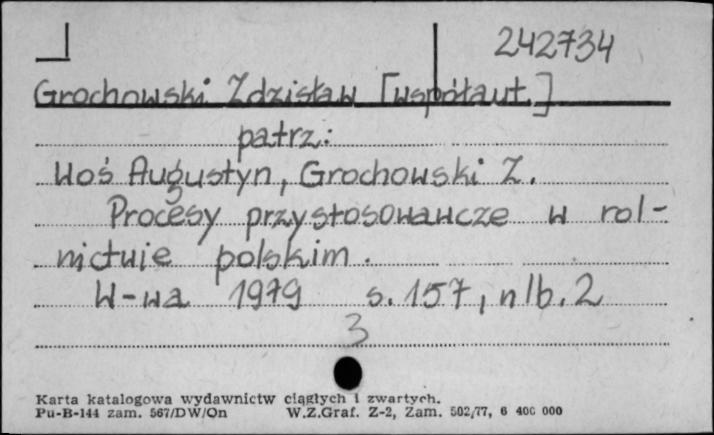 242734
Grochowski Zdzisław [współaut.]
patrz:
Woś Augustyn, Grochowski Z.
Procesy przystosowawcze w rol-
nictwie polskim.
W-wa 1979 s. 157, nlb. 2
3
Karta katalogowa wydawnictw ciągłych i zwartych.
Pu-B-144 zam. 567/DW/On W.Z.Graf. Z-2, Zam. 502/77, 6 400 000